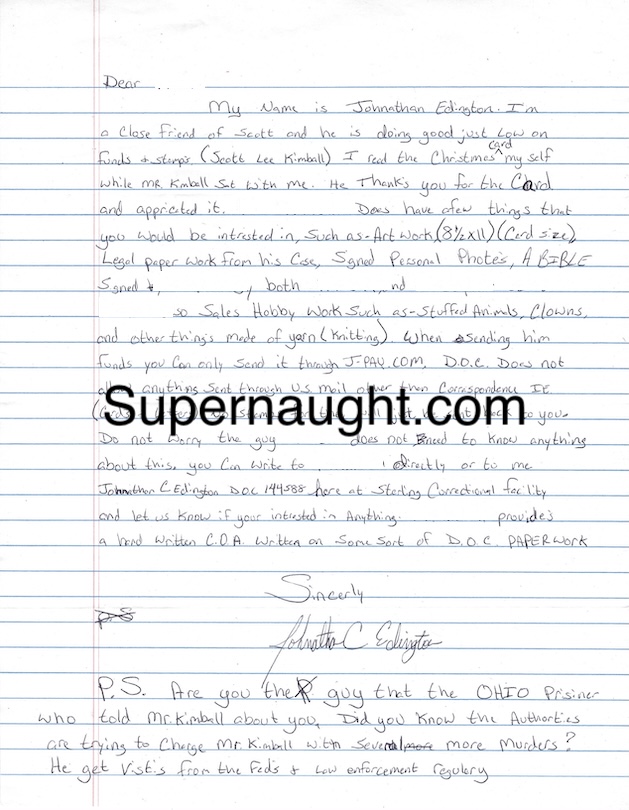 Dear
My Name is Johnathan Edington. I'm
a close friend of Scott and he is doing good just Low on
funds & stamps. (Scott Lee Kimball) I read the Christmas card my self
while MR. Kimball Sat with me. He Thanks you for the Card
and appricited it. Does have afew things that
you would be intrested in, Such as- Art work (8½ x 11) (Card size),
Legal paper work from his Case, Signed Personal Photo's, A BIBLE
Signed both nd
so Sales Hobby Work Such as-Stuffed Animals, Clowns,
and other thing's made of yarn (Knitting). When sending him
funds you Can only Send it through J-PAY.COM, D.O.C. Does not
anything Sent through U.S. mail other then Correspondence IE.
Supernaught.com
Do not worry the guy does not need to know anything
about this, you Can write to directly or to me
Johnathan C Edington D.O.C 144588 here at Sterling Correctional facility
and let us know if your intrested in Anything. provide's
a hand written C.O.A. written on Some Sort of D.O.C. PAPERWORK
Sincerly
Johnathan C Edington
P.S. Are you the guy that the OHIO Prisiner
who told Mr. Kimball about you, Did you know the Authorties
are trying to Charge Mr. Kimball with several more Murders?
He get Vistis from the Fed's & Law enforcement regulory